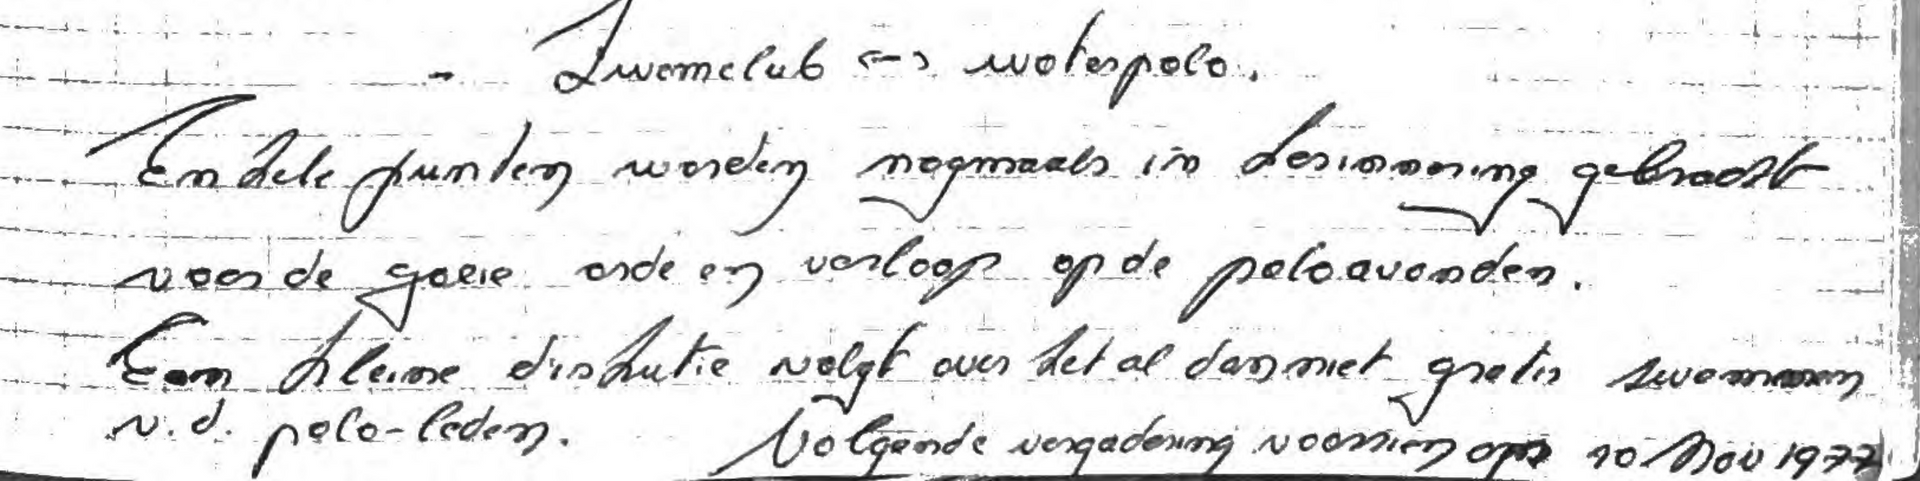 - Zwemclub <-> waterpolo.
Enkele punten worden nogmaals in herinnering gebracht
voor de goeie orde en verloop op de poloavonden.
Een kleine diskutie volgt over het al dan niet gratis zwemmen
v.d. polo-leden. Volgende vergadering voorzien op 10 Nov 1977